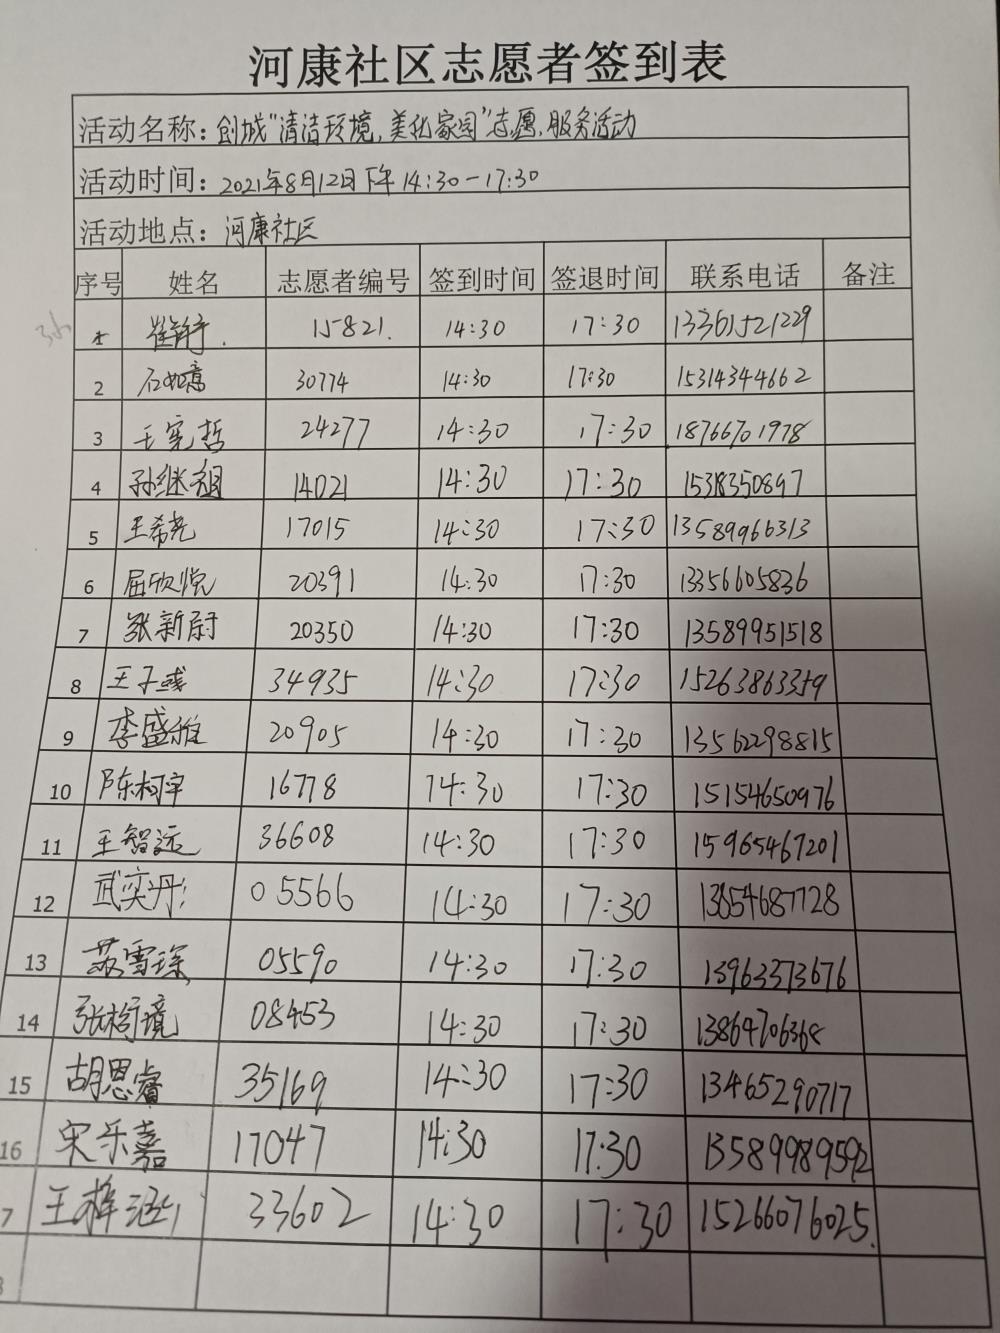 河康社区志愿者签到表
活动名称：创城“清洁环境，美化家园”志愿服务活动
活动时间：2021年8月12日下午14:30-17:30
活动地点：河康社区
序号 姓名 志愿者编号 签到时间 签退时间 联系电话 备注
15821. 14:30 17:30 13361521229
2 石如意 30774 14:30 17:30 15314344662
3 王宪哲 24277 14:30 17:30 18766701978
4 孙继祖 14021 14:30 17:30 15318350897
5 王希尧 17015 14:30 17:30 13589966313
6 屈欣悦 20391 14:30 17:30 13356605836
7 张新尉 20350 14:30 17:30 13589951518
8 王子彧 34935 14:30 17:30 15263863359
9 李盛维 20905 14:30 17:30 13562298815
10 陈柯宇 16778 14:30 17:30 15154650976
11 王智远 36608 14:30 17:30 15965467201
12 武奕丹 05566 14:30 17:30 13854687728
13 苏雪琛 05590 14:30 17:30 13963373676
14 08453 14:30 17:30 13864706368
15 胡恩睿 35169 14:30 17:30 13465290717
16 宋乐嘉 17047 14:30 17:30 13589989592
7 王梓涵 33602 14:30 17:30 15266076025.